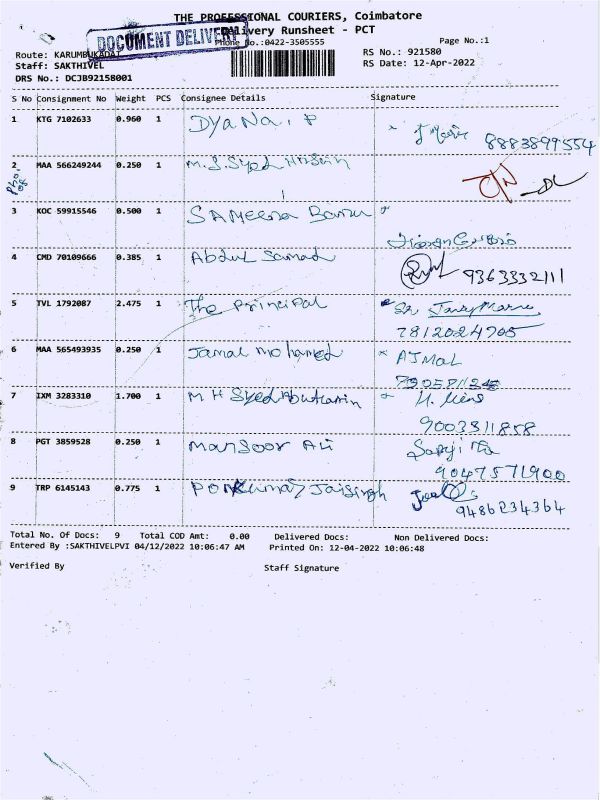 THE PROFESSIONAL COURIERS, Coimbatore
DOCUMENT DELIVERY
Delivery Runsheet - PCT
Phone No.:0422-3505555
Page No.:1
Route: KARUMBUKADAI
RS No.: 921580
Staff: SAKTHIVEL
RS Date: 12-Apr-2022
DRS No.: DCJB92158001
S No Consignment No Weight PCS Consignee Details Signature
1 KTG 7102633 0.960 1 Dyana. P 8883899554
2 MAA 566249244 0.250 1 M.S.Syed Hussain
3 KOC 59915546 0.500 1 SAMeera Banu
4 CMD 70109666 0.385 1 Abdul Samad 9363332111
5 TVL 1792087 2.475 1 The Principal
7812024705
6 MAA 565493935 0.250 1 Jamal mohamed AJMAL
7 IXM 3283310 1.700 1 M H Syed
9003811858
8 PGT 3859528 0.250 1 Mansoor Ali
9047571900
9 TRP 6145143 0.775 1 Ponkumar Jaisingh
9486234364
Total No. Of Docs: 9 Total COD Amt: 0.00 Delivered Docs: Non Delivered Docs:
Entered By :SAKTHIVELPVI 04/12/2022 10:06:47 AM Printed On: 12-04-2022 10:06:48
Verified By Staff Signature